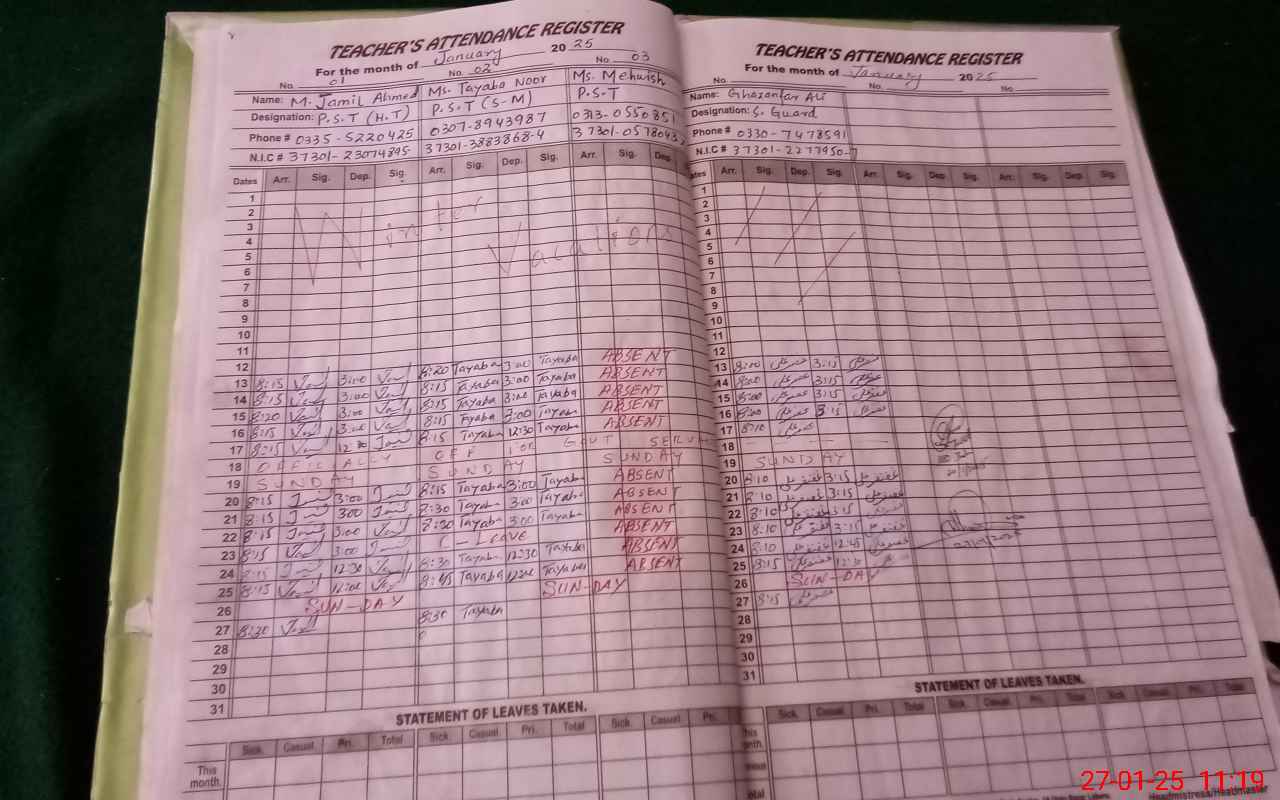 TEACHER'S ATTENDANCE REGISTER
For the month of January 2025
No. 01 No. 02 No. 03
Name: M. Jamil Ahmed Ms. Tayaba Noor Ms. Mehwish
Designation: P.S.T (H.T) P.S.T (S-M) P.S.T
Phone # 0335-5220425 0307-8943987 0313-0550851
N.I.C # 37301-23074895- 37301-3883868-4
Dates Arr. Sig. Dep. Sig. Arr. Sig. Dep. Sig. Arr. Sig. Dep.
1
2
3
4
5
6
Winter Vacation
7
8
9
10
11
12
13 8:15 3:00 8:20 Tayaba 3:00 Tayaba ABSENT
14 8:15 3:00 8:15 Tayaba 3:00 Tayaba ABSENT
15 8:20 3:00 8:15 Tayaba 3:00 Tayaba ABSENT
16 8:15 3:00 8:15 Tayaba 3:00 Tayaba ABSENT
17 8:15 12:30 8:15 Tayaba 12:30 Tayaba ABSENT
18 OFFICIALLY OFF For GOUT SERV
19 SUNDAY SUNDAY SUNDAY
20 8:15 3:00 8:15 Tayaba 3:00 Tayaba ABSENT
21 8:15 3:00 8:30 Tayaba 3:00 Tayaba ABSENT
22 8:15 3:00 8:30 Tayaba 3:00 Tayaba ABSENT
23 8:15 3:00 C-LEAVE ABSENT
24 8:15 12:30 8:30 Tayaba 12:30 Tayaba ABSENT
25 8:15 12:00 8:45 Tayaba 12:00 Tayaba ABSENT
26 SUN-DAY SUN-DAY
27 8:30 8:30 Tayaba
28
29
30
31
STATEMENT OF LEAVES TAKEN.
Sick. Casual. Pri. Total Sick. Casual. Pri. Total Sick. Casual. Pri.
This month.
TEACHER'S ATTENDANCE REGISTER
For the month of January 2025
No. No. No.
Name: Ghazanfar Ali
Designation: S. Guard
Phone # 0330-7478591
N.I.C # 37301-2277950-7
Dates Arr. Sig. Dep. Sig. Arr. Sig. Dep. Sig. Arr. Sig. Dep. Sig.
1
2
3
4
5
6
7
8
9
10
11
12
13 8:00 3:15
14 8:00 3:15
15 8:00 3:15
16 8:00 3:15
17 8:10
18
19 SUNDAY
20 8:10 3:15
21 8:10 3:15
22 8:10 3:15
23 8:10 3:15
24 8:10 12:45
25 8:15 12:30
26 SUN-DAY
27 8:15
28
29
30
31
STATEMENT OF LEAVES TAKEN.
Sick. Casual. Pri. Total Sick. Casual. Pri. Total Sick. Casual. Pri. Total
Headmistress/Headmaster
27-01-25 11:19